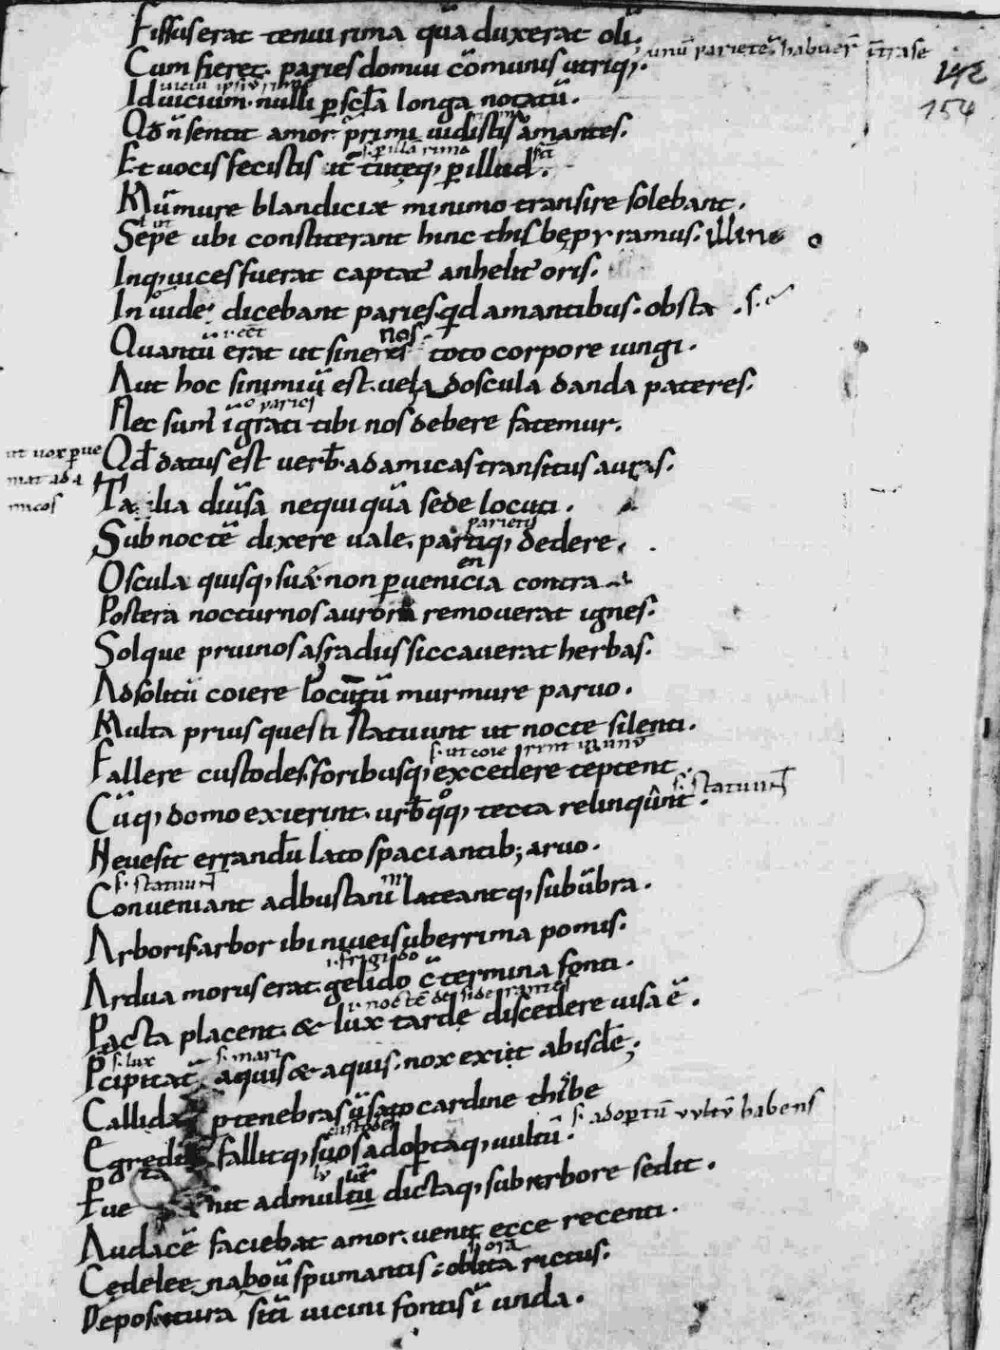 Fissus erat tenui rima quā duxerat oliͫ
unū parietē habuer̄ int̄ra se
Cum fieret. paries domui cōmunis utriq;.
142
154
Id uicium. nulli p scl̄a longa notatū.
Qd n̄ sentit amor. p̄rimi uidistis amantes.
s. p illa rima
Et uocis fecistis it̄ tuteq; p illud.
Mūmure blandiciæ minimo transire solebant.
Sepe ubi constiterant hinc thisbe pyramus. illinc
Inq; uices fuerat captat᾽ anhelit᾽ oris.
Inuide dicebant paries. qd amantibus. obsta
Quantū erat ut sineres toto corpore iungi.
nos
Aut hoc si nimiū est. uel a doscula danda pateres.
paries
Nec sum᾽ īgrati tibi nos debere fatemur.
ut uox pue
Qd datus est uerb̄. ad amicas transitus aures.
niat ad a
micos
Talia diūsa nequi quā sede locuti.
Sub noctē dixere uale. partiq; dedere.
parietis
Oscula quisq; suæ non puenientia contra
Postera nocturnos aurora remouerat ignes.
Solque pruinosas radiis siccauerat herbas.
Ad solitū coiere locum̄ tū murmure paruo.
Multa prius questi statuunt ut nocte silenti.
Fallere custodes. foribusq; excedere teptent.
s. statuunt
Cūq; domo exierint. urb̄ qoq; tecta relinquant.
Neue sit errand̄u lato spaciantib; aruo.
s. statuunt
Conueniant ad busta nini lateantq; sub ūbra.
Arboris. arbor ibi niueis uberrima pomis.
i. frigido
Ardua morus erat. gelido c̄termina fonti.
Pacta placent. & lux tarde discedere uisa ē.
s. lux s. mari
P̄cipitat᾽ aquis & aquis. nox exiit abisdē;
Callida p tenebras ūsato cardine thisbe
s. adoptū uultū habens
custodes
Egreditur fallitq; suos adoptaq; uultū.
Pue nit ad tumulū dictaq; sub arbore sedit.
Audacē faciebat amor. uenit ecce recenti.
ora
Cede leena boū spumantis oblita rictus.
Depositura sitī uicini fontis ī unda.